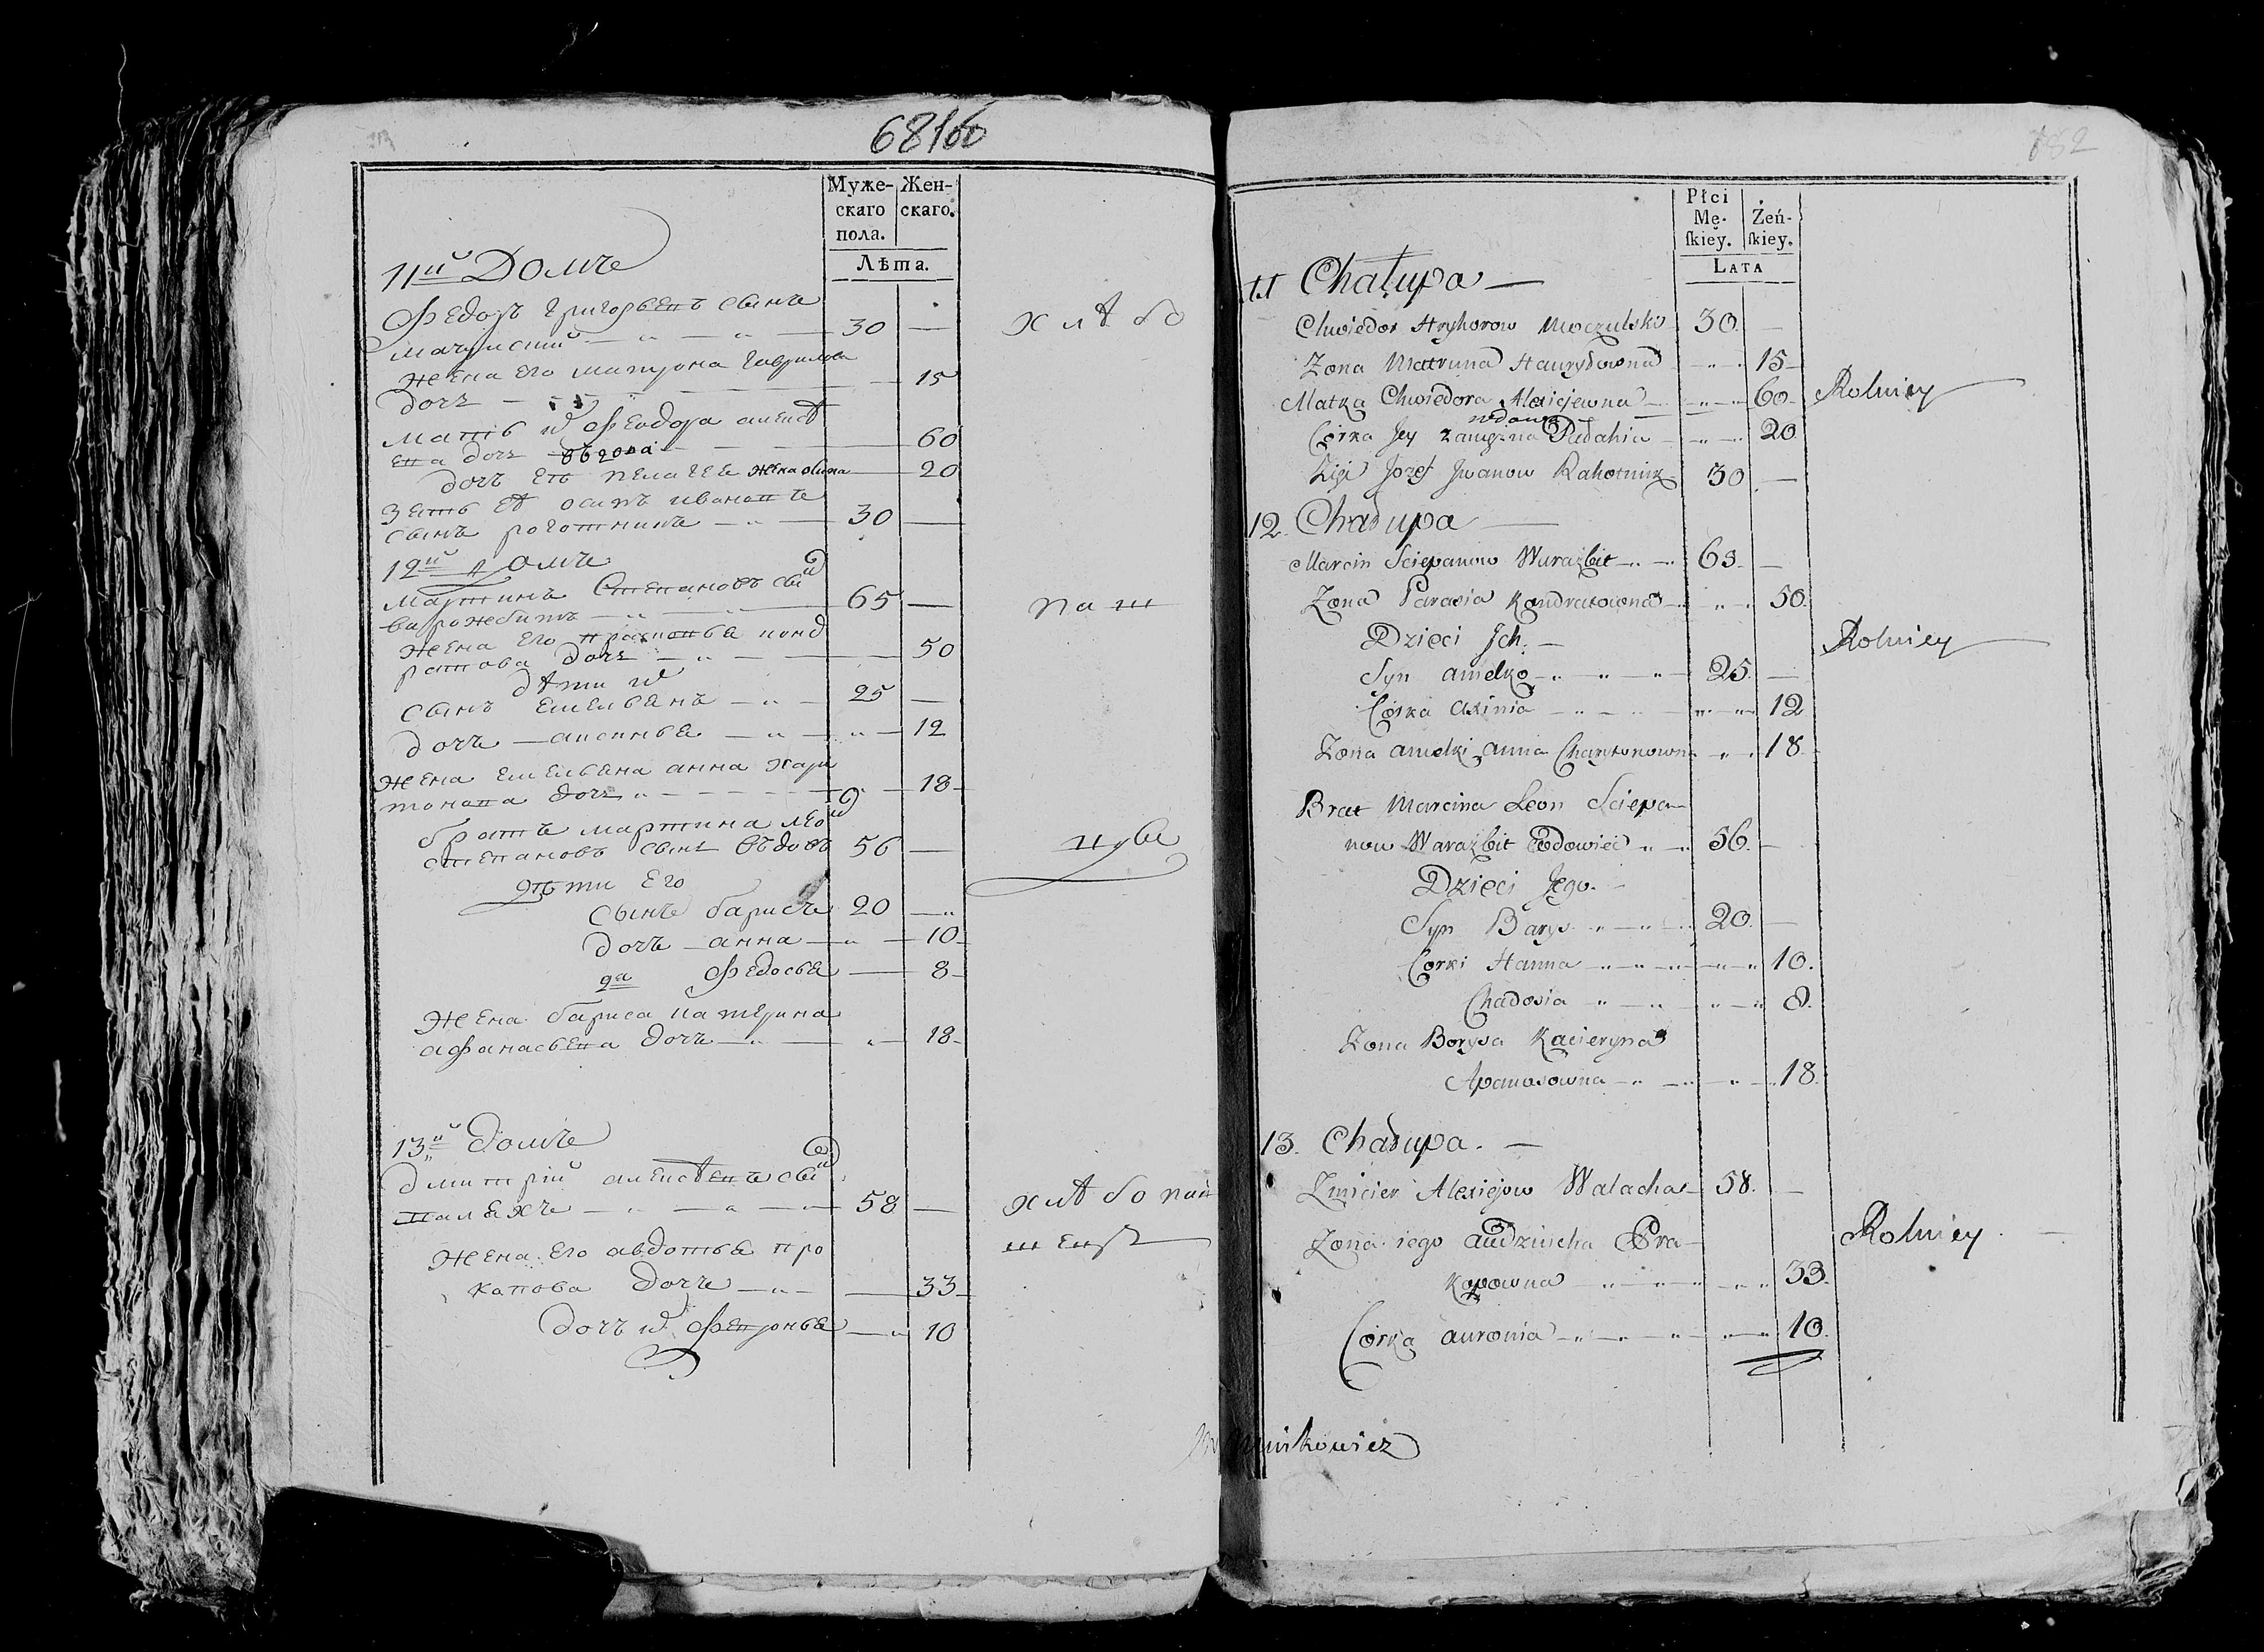 68160
Муже-
скаго
пола.
Жен-
скаго.
Лѣта.
11й Домъ
Федоръ Григорьевъ сынъ
30
хлѣбо
жена его матрона гаврилова
дочь
15
мать
60
дочь ея пелагея жена
20
зять ея осипъ ивановъ
сынъ роготникъ
30
12й домъ
мартинъ Степановъ сы
ворожбитъ
65
паш
жена его прасковья конд
ратова дочь
50
дѣти их
сынъ емельянъ
25
дочь аксинья
12
жена емельяна анна хари
тонова дочь
18
братъ мартина лео
степановъ сынъ вдовъ
56
дѣти его
сынъ барисъ
20
дочь анна
10
да федосья
8
жена бариса катерина
афанасьева дочь
18
13й домъ
дмитрій алексѣевъ сы
валахъ
58
хлѣбопаш
жена его авдотья про
капова дочь
33
дочь их февронья
10
882
Płci
Mę-
skiey.
Żeń-
skiey.
LATA
11 Chałupa
Chwiedor Hryhorow Moczulski 30
Zona Matruna Hauryłowna 15
Matka Chwiedora Alexiejewna 60 Rolnicy
wdowa
Córka Jey zamężna Pałahia 20
Zięć Jozef Jwanow Rahotnik 30
12. Chałupa
Marcin Sciepanow Warażbit 65
Zona Parasia Kondratowna 50
Dzieci Jch. Rolnicy
Syn amelko 25
Córka axinia 12
Zona amelki anna Charytonowna 18
Brat Marcina Leon Sciepa-
now Warażbit Wdowiec 56
Dzieci Jego.
Syn Barys 20
Corki Hanna 10.
Chadosia 8.
Zona Borysa Kacieryna
Apanasowna 18
13. Chałupa.
Zmicier Alexiejow Walacha 58.
Zona iego audziucha Pra- Rolnicy
kopowna 33.
Córka auronia 10.